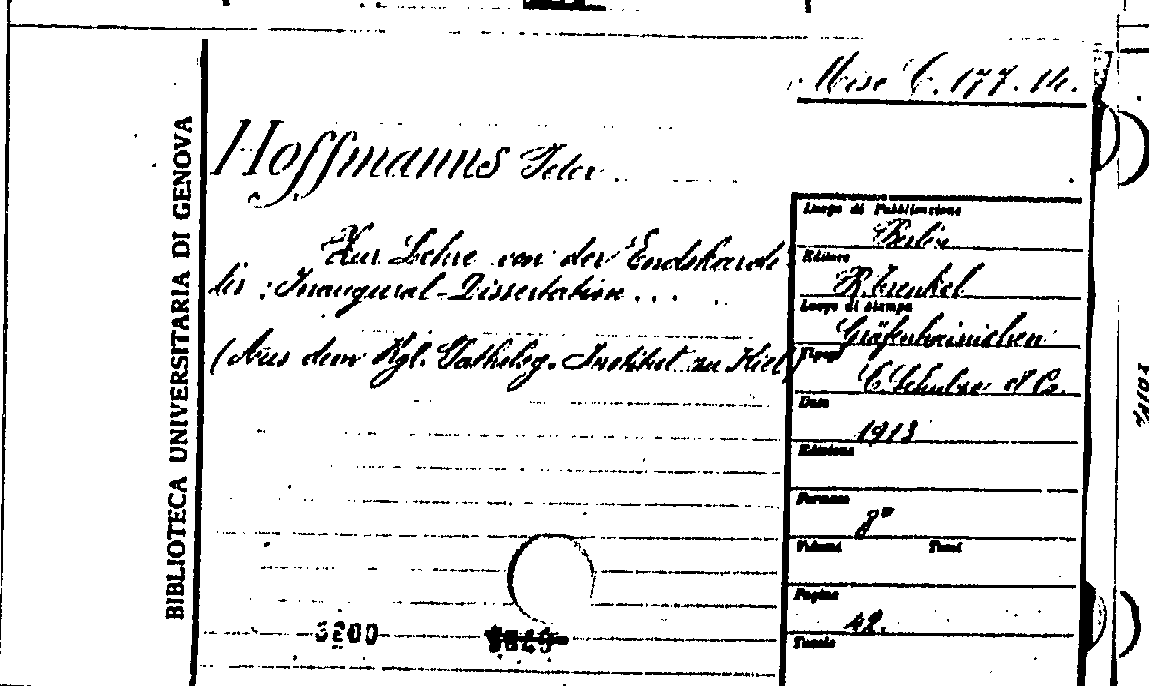 Misc C. 177. 14.
BIBLIOTECA UNIVERSITARIA DI GENOVA
Hoffmanns Peter
Zur Lehre von der Endokardi
tis : Inaugural-Dissertation...
(Aus dem Kgl. Patholog. Institut zu Kiel)
Luogo di Pubblicazione
Berlin
Editore
R. Trenkel
Luogo di stampa
Gräfenhainichen
Tipogr.
C. Schulze & Co.
Data
1913
Edizione
Formato
8°
Volumi Tomi
Pagine
42.
Tavole
3200